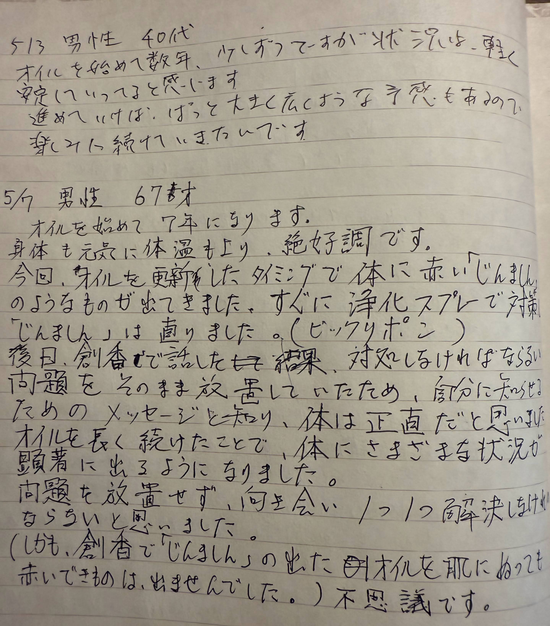 5/3 男性 40代
オイルを始めて数年、少しずつですが状況は、軽く
安定していってると感じます
進めていけば、ぱっと大きく広くような予感もあるので
楽しみに続けていきたいです
5/7 男性 67才
オイルを始めて7年になります。
身体も元気に体温も上り、絶好調です。
今回、オイルを更新したタイミングで体に赤い「じんましん」
のようなものが出てきました。すぐに浄化スプレーで対策
「じんましん」は直りました。(ビックリポン)
後日、創香で話した結果、対処しなければならない
問題をそのまま放置していたため、自分に知らせる
ためのメッセージと知り、体は正直だと思いました
オイルを長く続けたことで、体にさまざまな状況が
顕著に出るようになりました。
問題を放置せず、向き合い 1つ1つ解決しなけれ
ならないと思いました。
(しかも、創香で「じんましん」の出たオイルを肌にぬっても
赤いできものは、出ませんでした。)不思議です。